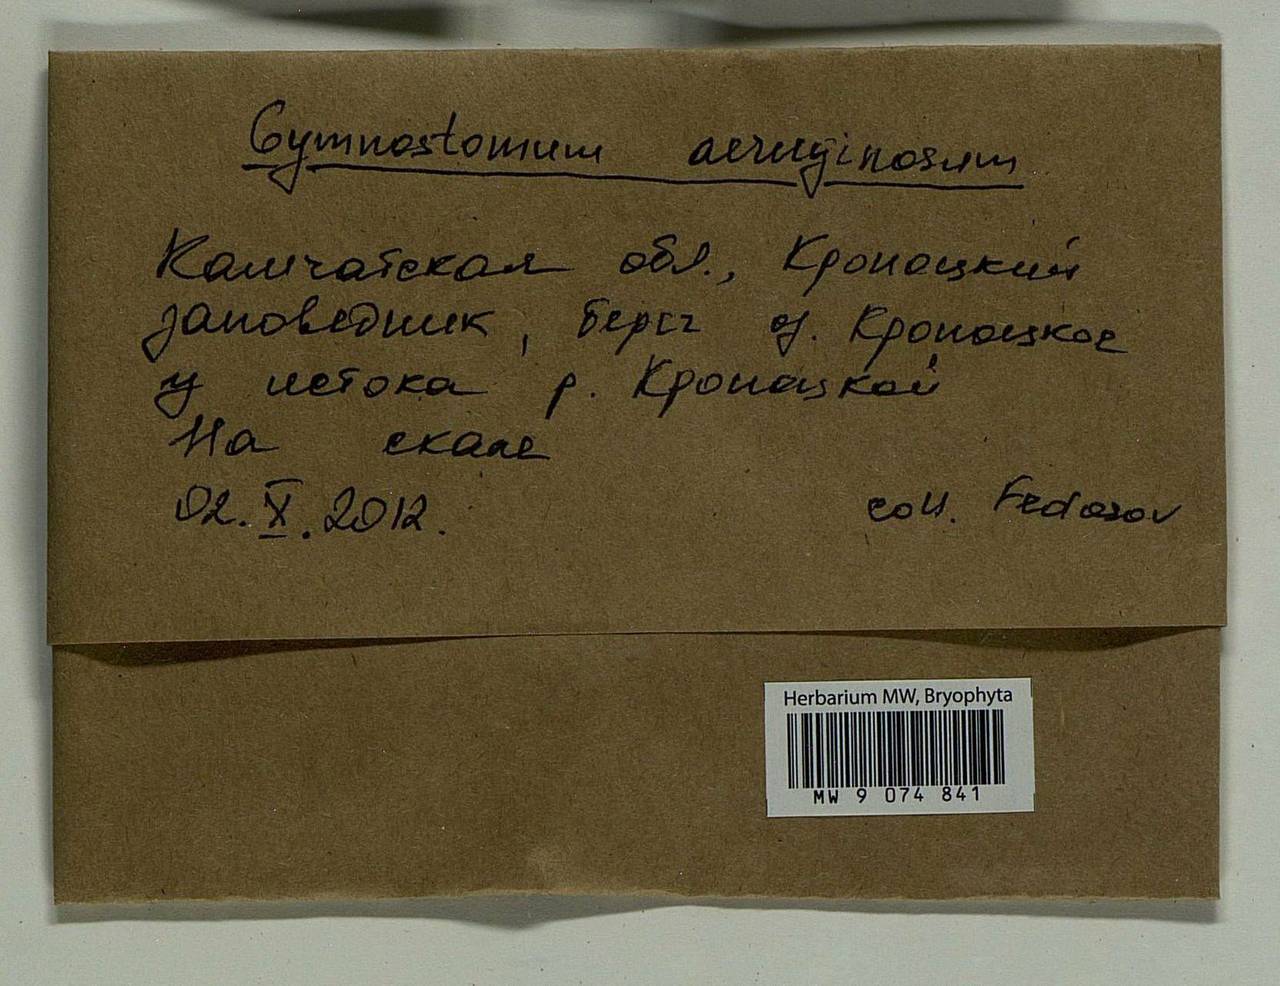 Gymnostomum aeruginosum
Камчатская обл., Кроноцкий
заповедник, берег оз. Кроноцкое
у истока р. Кроноцкой
На скале
02.X.2012.
coll. Fedosov
Herbarium MW, Bryophyta
MW 9 074 841